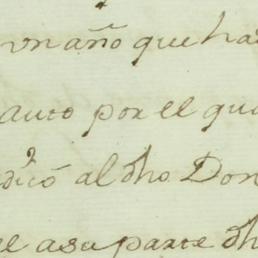 un año que ha
auto por el qu
dicó al dho Don
el a su parte dh